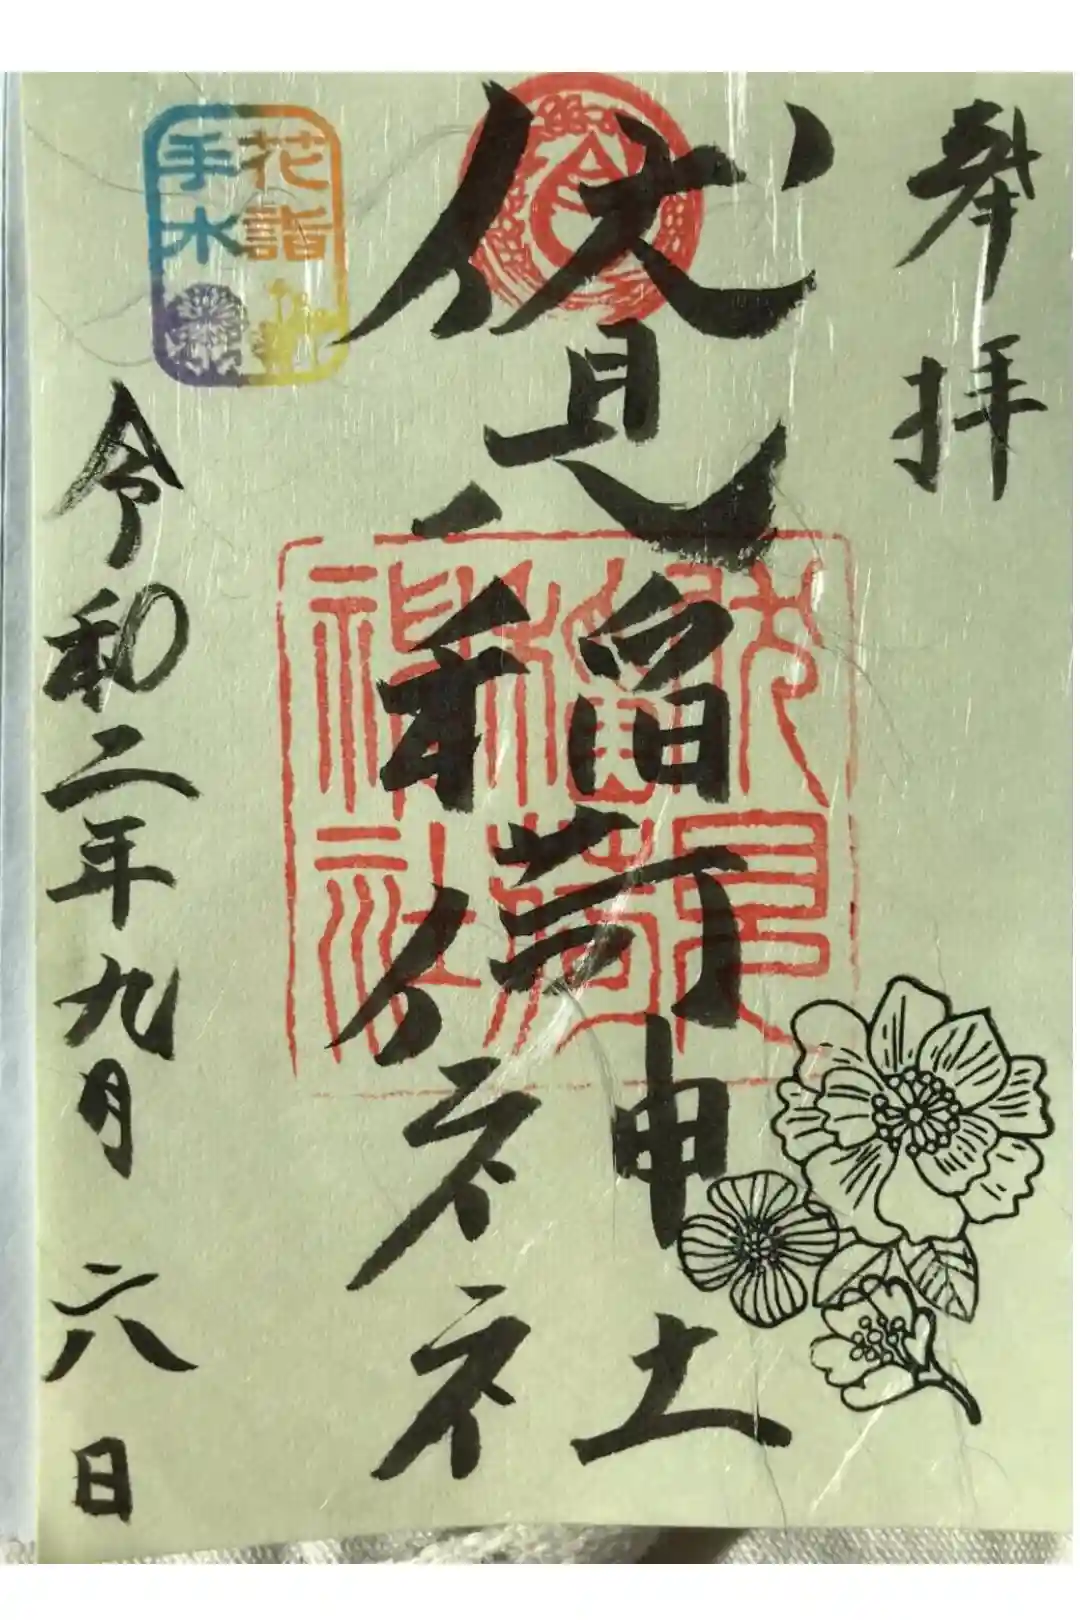 奉拝
伏見稲荷神社
伏見稲荷神社
花詣
手水
令和二年九月六日